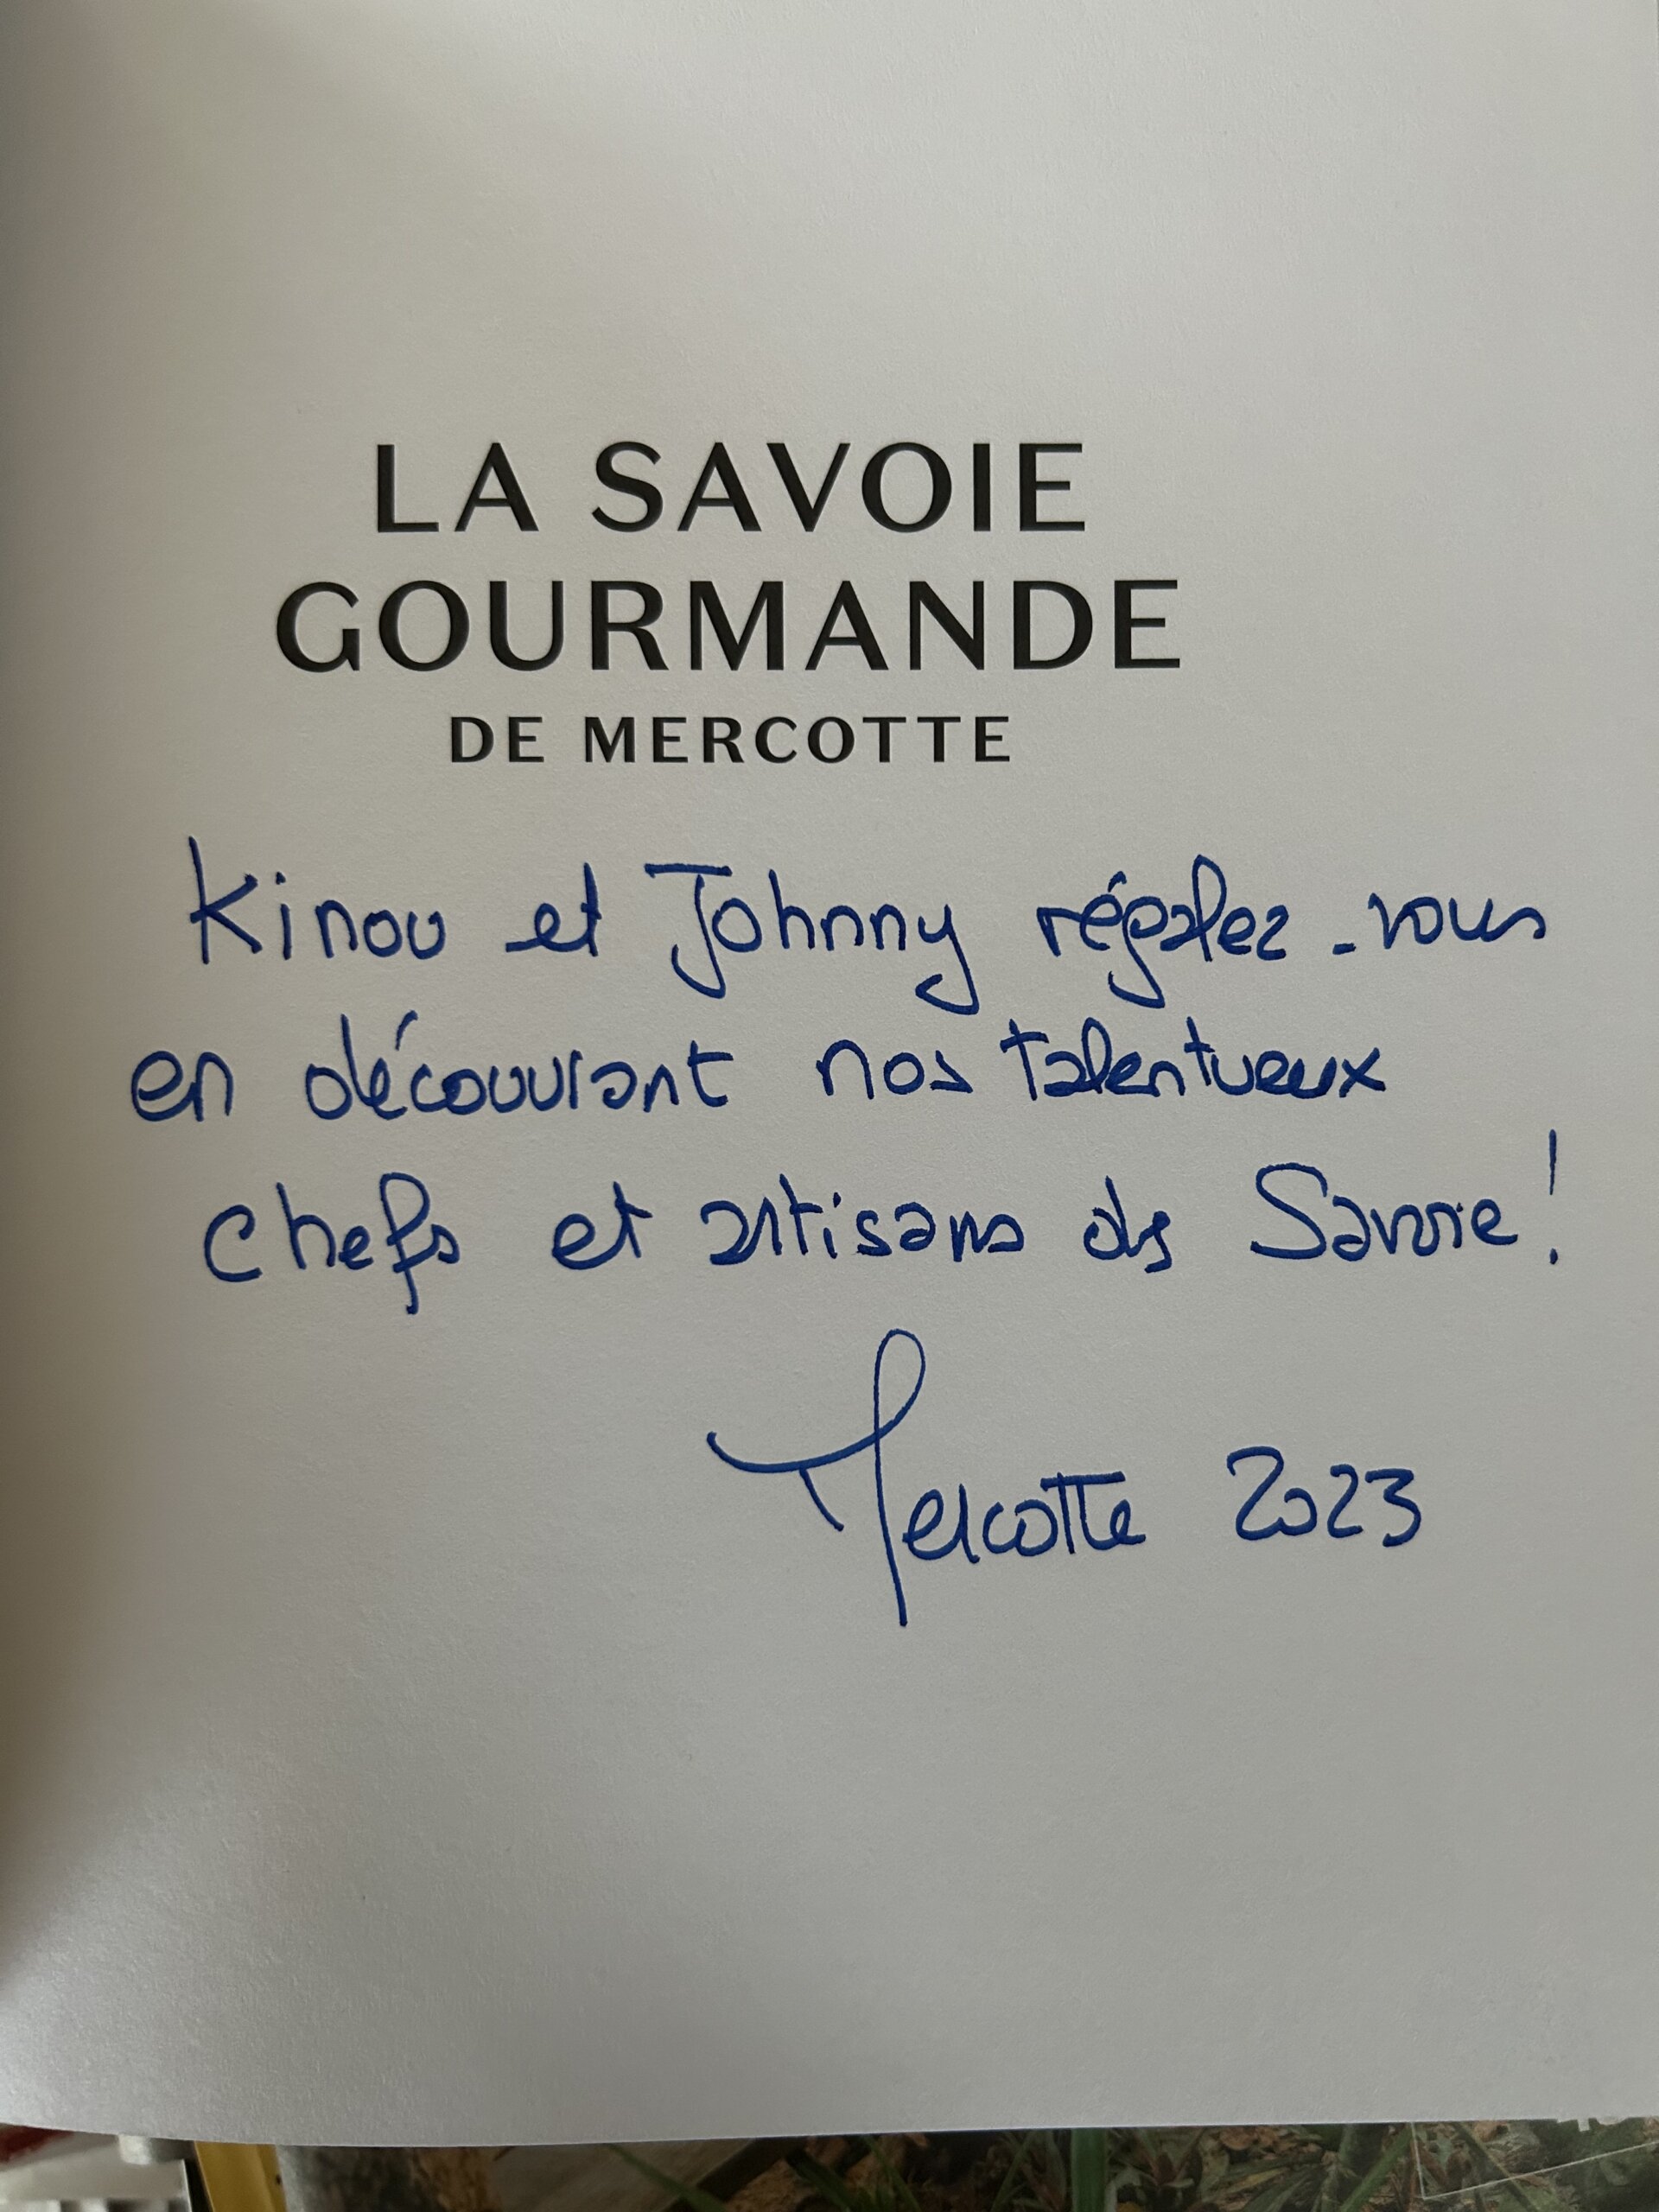 LA SAVOIE
GOURMANDE
DE MERCOTTE
Kinou et Johnny régalez-vous
en découvrant nos talentueux
chefs et artisans des Savoie!
Mercotte 2023